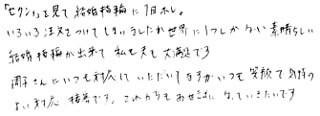 「ゼクシィ」を見て結婚指輪に1目ボレ。
いろいろ注文をつけてしまいましたが世界に1つしかない素晴らしい
結婚指輪が出来て私も夫も大満足です
岡子さんにいつも対応していただいてますがいつも笑顔で気持の
よい対応 接客です。これからもお世話になっていきたいです